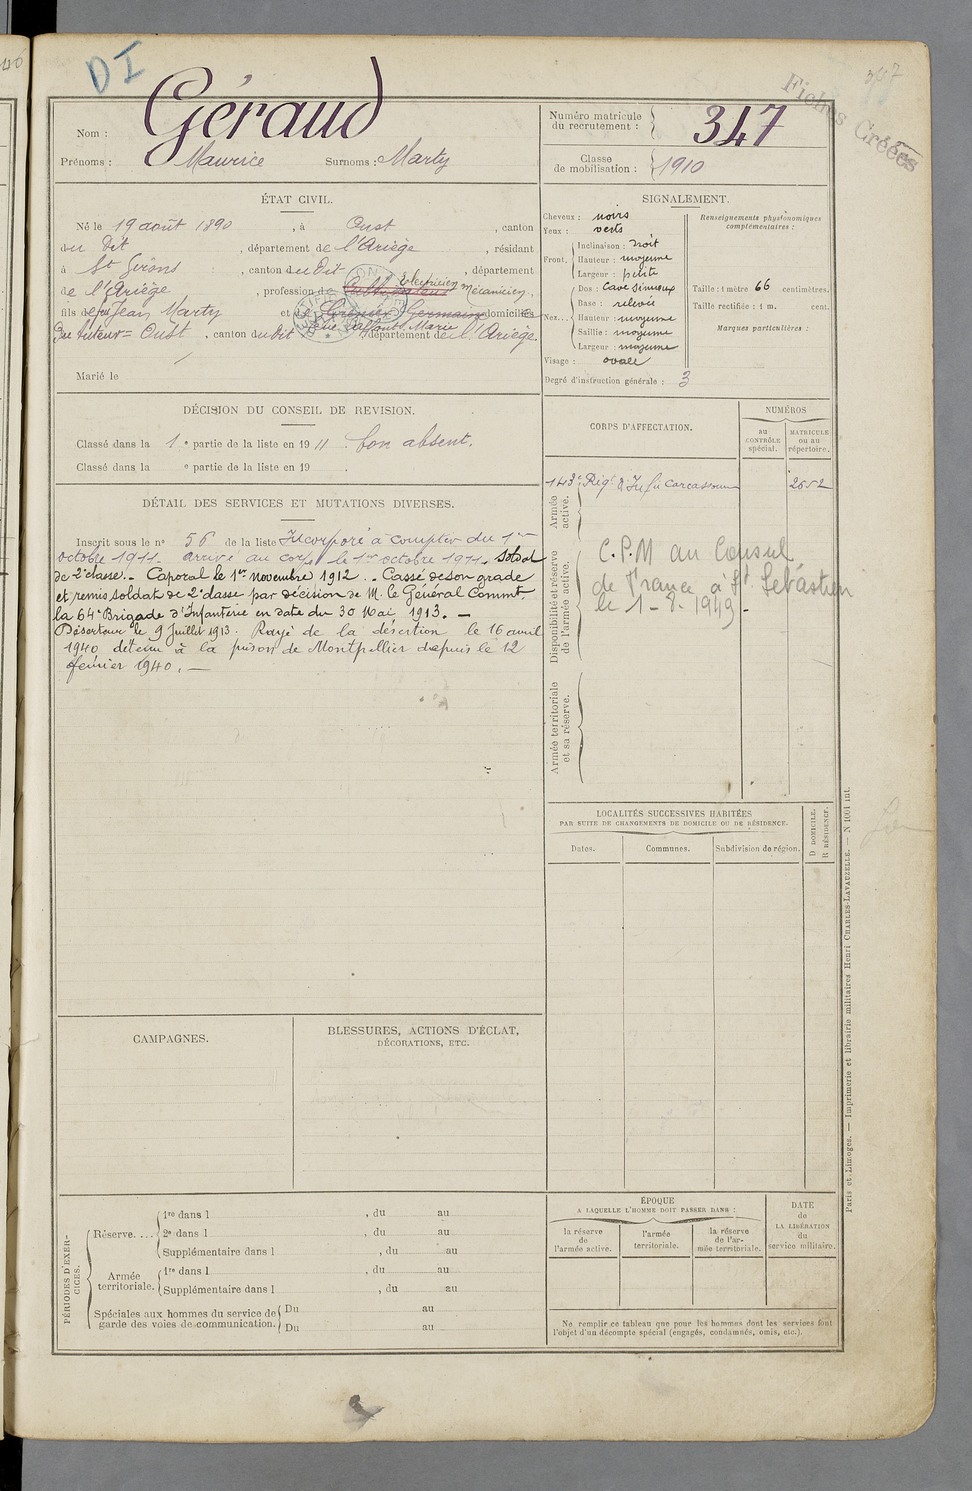 DI
347
Fiches Créées
Nom : Géraud
Prénoms : Maurice Surnoms : Marty
Numéro matricule du recrutement : 347
Classe de mobilisation : 1910
ÉTAT CIVIL.
Né le 19 août 1890, à Oust, canton
du dit, département de l'Ariège, résidant
à St Girons, canton du dit, département
de l'Ariège, profession de Electricien Mécanicien,
fils de feu Jean Marty et de domiciliés
à Oust, canton du dit, département de l'Ariège.
Marié le
DÉCISION DU CONSEIL DE REVISION.
Classé dans la 1e partie de la liste en 1911 bon absent.
Classé dans la e partie de la liste en 19 .
DÉTAIL DES SERVICES ET MUTATIONS DIVERSES.
Inscrit sous le no 56 de la liste Incorporé à compter du 1er
octobre 1911. arrivé au corps le 1er octobre 1911. Soldat
de 2e classe. - Caporal le 1er novembre 1912. - Cassé de son grade
et remis soldat de 2e classe par décision de M. le Général Commt.
la 64e Brigade d'Infanterie en date du 30 Mai 1913. -
Déserteur le 9 Juillet 1913. Rayé de la désertion le 16 avril
1940, détenu à la prison de Montpellier depuis le 12
février 1940. -
SIGNALEMENT.
Cheveux : noirs
Yeux : verts
Front. Inclinaison : Droit
Hauteur : moyenne
Largeur : petite
Nez... Dos : Cave sinueux
Base : relevée
Hauteur : moyenne
Saillie : moyenne
Largeur : moyenne
Visage : ovale
Degré d'instruction générale : 3
Renseignements physionomiques complémentaires :
Taille : 1 mètre 66 centimètres.
Taille rectifiée : 1 m. cent.
Marques particulières :
CORPS D'AFFECTATION.
NUMÉROS
au CONTRÔLE spécial.
MATRICULE ou au répertoire.
Armée active.
143e Régt d'Infie Carcassonne 2652
Disponibilité et réserve de l'armée active.
C.P.M au Consul
de France à St Sébastien
le 1-8-1949.
Armée territoriale et sa réserve.
LOCALITÉS SUCCESSIVES HABITÉES
PAR SUITE DE CHANGEMENTS DE DOMICILE OU DE RÉSIDENCE.
Dates.
Communes.
Subdivision de région.
D DOMICILE.
R RÉSIDENCE.
CAMPAGNES.
BLESSURES, ACTIONS D'ÉCLAT,
DÉCORATIONS, ETC.
PÉRIODES D'EXERCICES.
Réserve.... 1re dans l , du au
2e dans l , du au
Supplémentaire dans l , du au
Armée territoriale. 1re dans l , du au
Supplémentaire dans l , du au
Spéciales aux hommes du service de garde des voies de communication. Du au
Du au
ÉPOQUE
A LAQUELLE L'HOMME DOIT PASSER DANS :
la réserve de l'armée active.
l'armée territoriale.
la réserve de l'armée territoriale.
DATE de LA LIBÉRATION du service militaire.
Ne remplir ce tableau que pour les hommes dont les services font
l'objet d'un décompte spécial (engagés, condamnés, omis, etc.).
Paris et Limoges. — Imprimerie et librairie militaires Henri CHARLES-LAVAUZELLE. — N 1001 int.